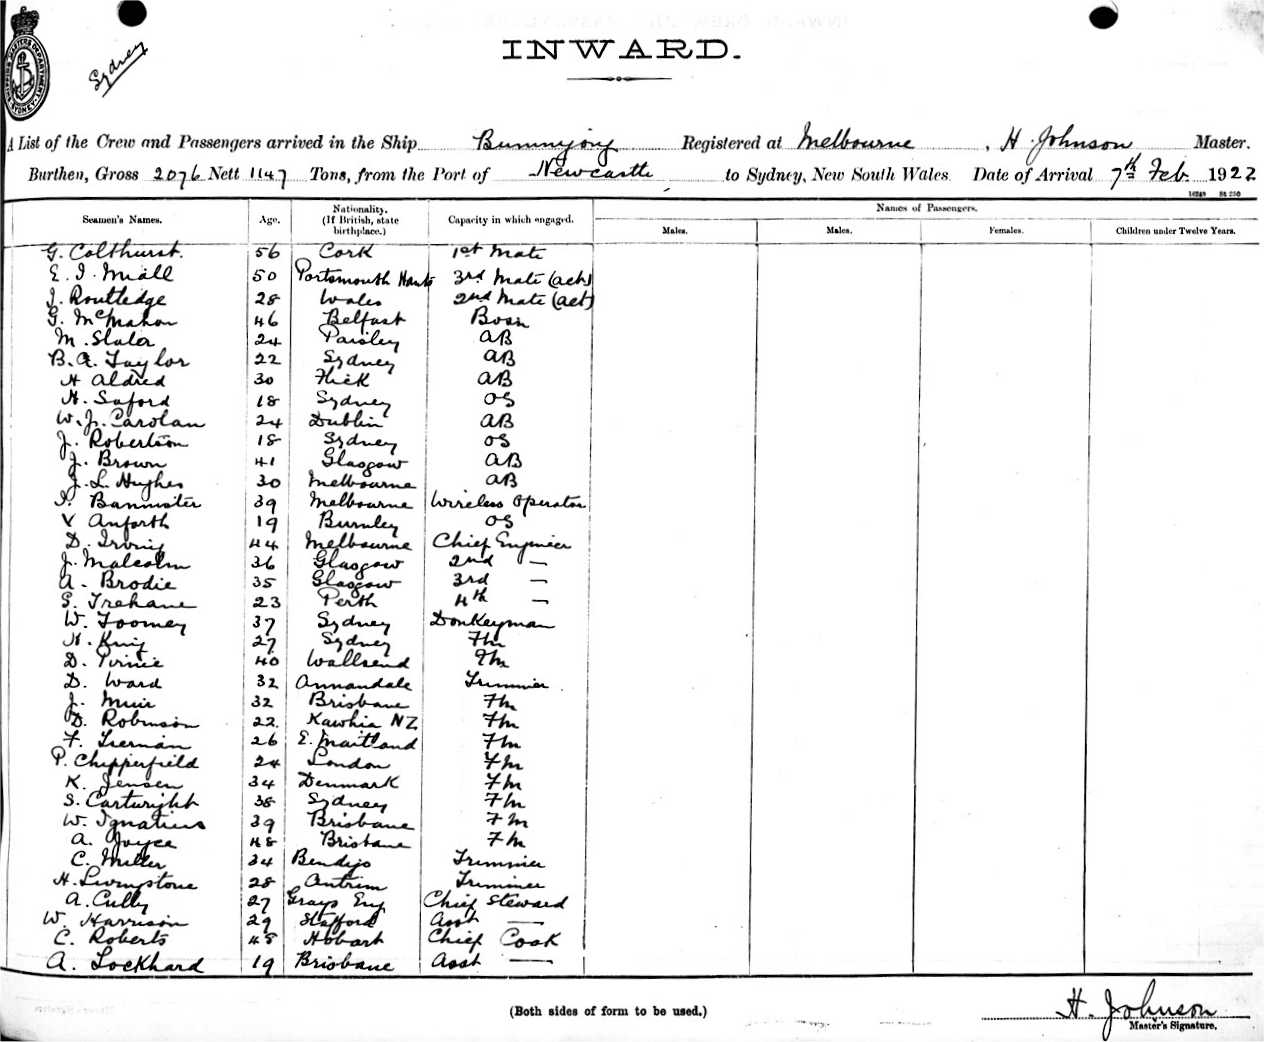 Sydney
INWARD.
A List of the Crew and Passengers arrived in the Ship Bunnyong Registered at Melbourne, H. Johnson Master.
Burthen, Gross 2076 Nett 1147 Tons, from the Port of Newcastle to Sydney, New South Wales. Date of Arrival 7th Feb. 1922
Seamen's Names. Age. Nationality. (If British, state birthplace.) Capacity in which engaged. Names of Passengers.
Males. Males. Females. Children under Twelve Years.
G. Colthurst. 56 Cork 1st Mate
E. I. Miall 50 Portsmouth Hants 3rd Mate (act)
J. Routledge 28 Wales 2nd Mate (act)
G. McMahon 46 Belfast Bosn
M. Slater 24 Paisley AB
B. A. Taylor 22 Sydney AB
H Aldred 30 AB
H. Saford 18 Sydney OS
W. J. Carolan 24 Dublin AB
J. Robertson 18 Sydney OS
J. Brown 41 Glasgow AB
J. L. Hughes 30 Melbourne AB
I. Bannister 39 Melbourne Wireless Operator
V Anforth 19 Burnley OS
D. Irving 44 Melbourne Chief Engineer
J. Malcolm 36 Glasgow 2nd —
A. Brodie 35 Glasgow 3rd —
S. Trehane 23 Perth 4th —
W. Toomey 37 Sydney Donkeyman
H. King 27 Sydney Fm
D. Pirnie 40 Wallsend Fm
D. Ward 32 Annandale Trimmer
J. Muir 32 Brisbane Fm
D. Robinson 22 Kawhia NZ Fm
F. Tiernan 26 E. Maitland Fm
P. Chipperfield 24 London Fm
K. Jensen 34 Denmark Fm
S. Cartwright 38 Sydney Fm
W. Ignatius 39 Brisbane Fm
A. Joyce 48 Brisbane Fm
C. Miller 34 Bendigo Trimmer
H. Livingstone 28 Antrim Trimmer
A. Cully 27 Grays Eng Chief Steward
W. Harrison 29 Stafford Asst —
C. Roberts 48 Hobart Chief Cook
A. Lockhard 19 Brisbane Asst —
(Both sides of form to be used.)
H. Johnson
Master's Signature.